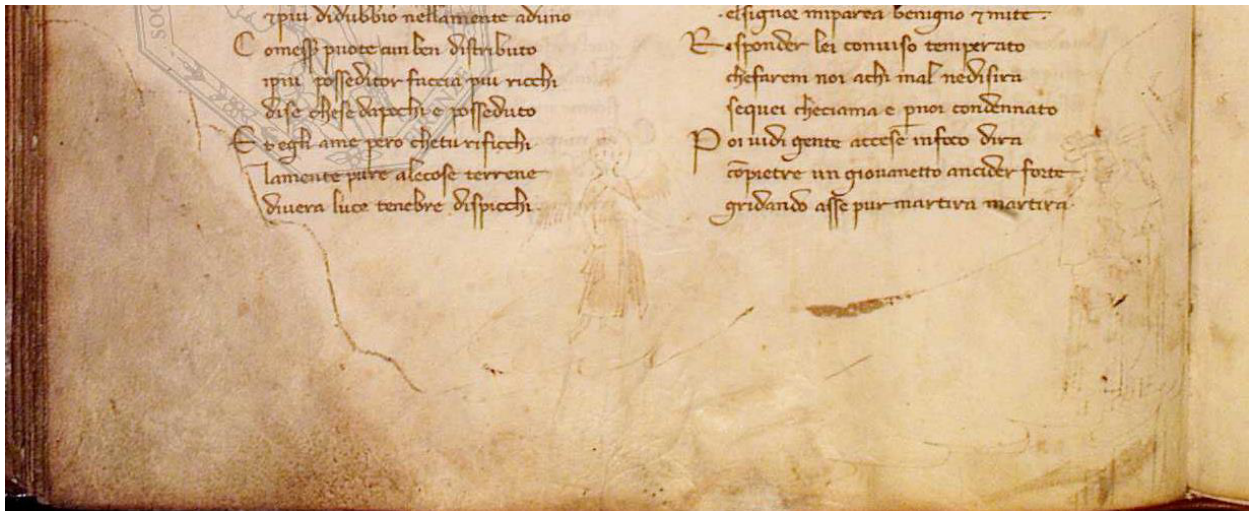 ⁊piu didubbio nellamente aduno
Comess puote cun ben distributo
ipiu posseditor faccia piu ricchi
dise chese dapochi e posseduto
Et egli ame pero chetu rificchi
lamente pure alecose terrene
divera luce tenebre dispicchi.
elsignor imparea benigno ⁊ mite.
Risponder lei conviso temperato
chefarem noi achi mal nedisira
sequei checiama e pnoi condennato
Poi vidi gente accese infoco dira
cōpietre un giovanetto ancider forte
gridando asse pur martira martira.